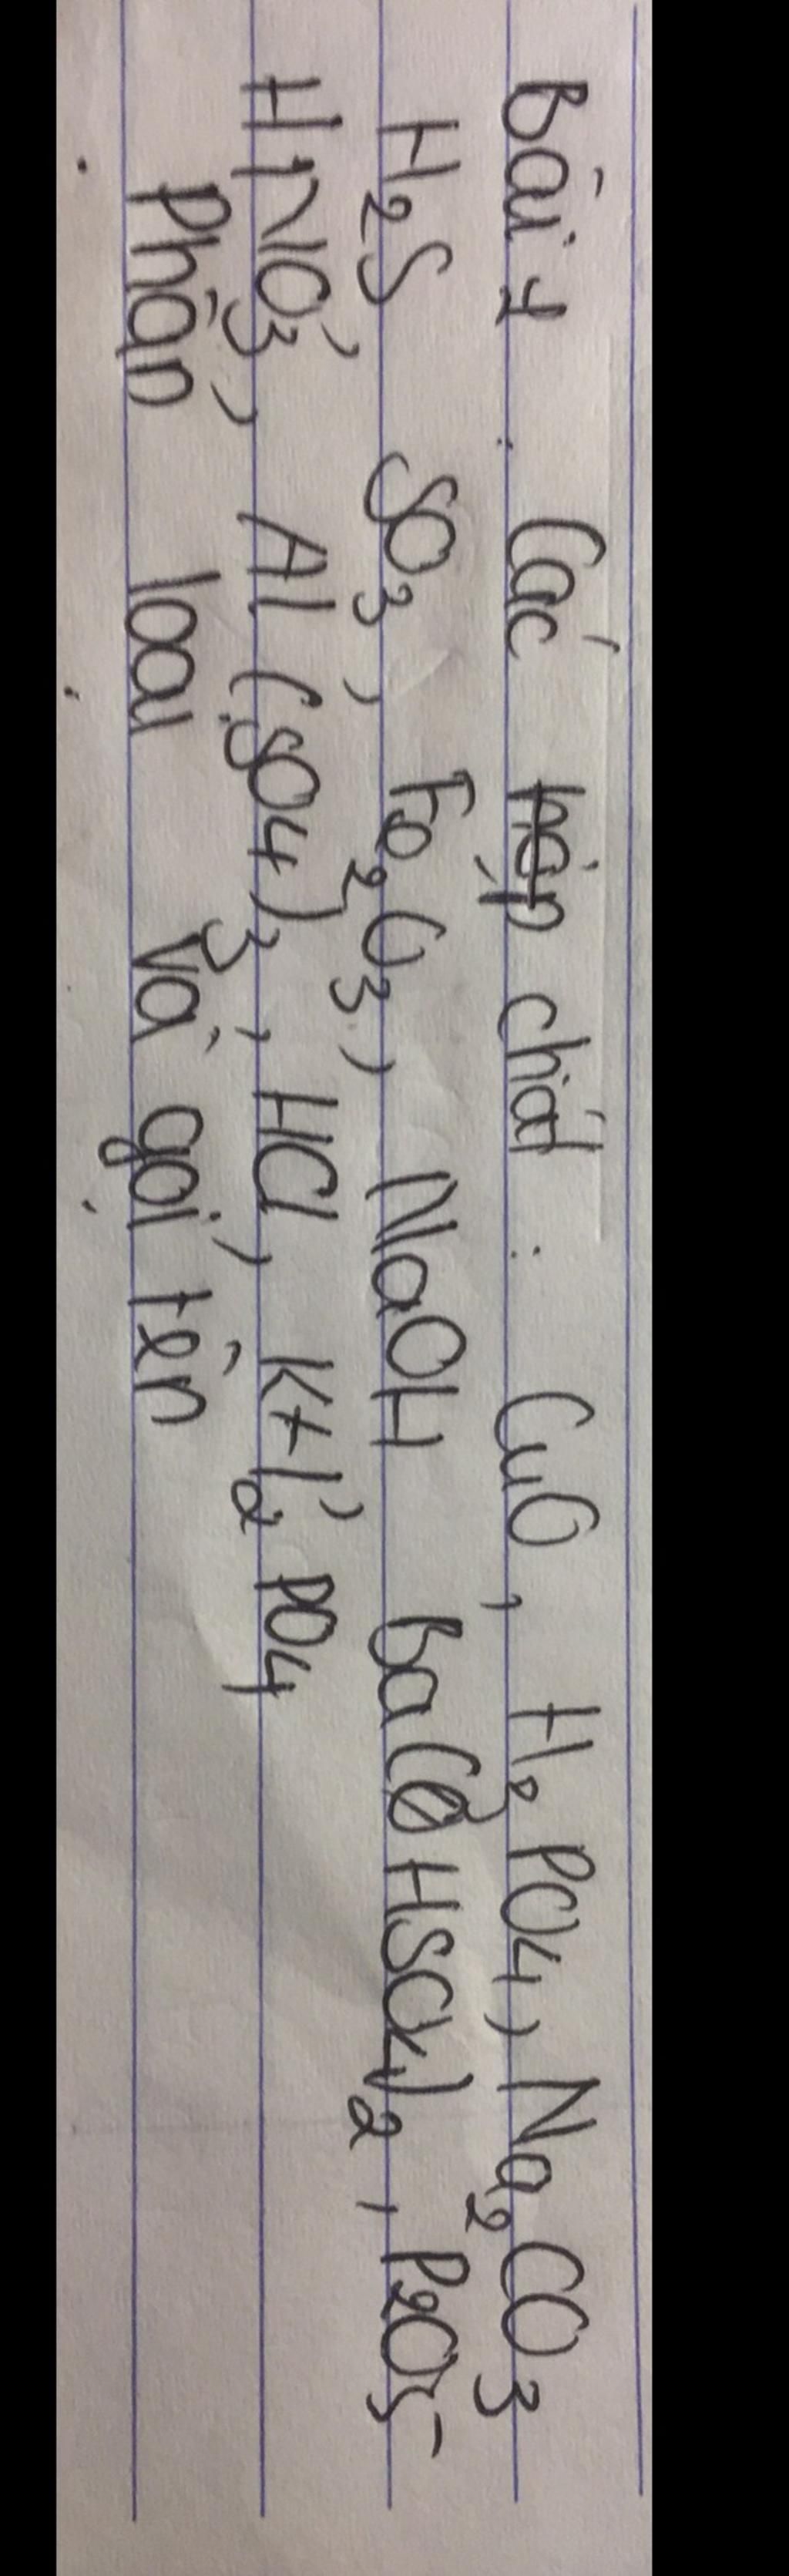 Bài 1. Các hợp chất : CuO, H3PO4, Na2CO3
H2S SO3, Fe2O3, NaOH Ba(HSO4)2, P2O5
HNO3, Al(SO4)3, HCl, KH2PO4
Phân loại và gọi tên